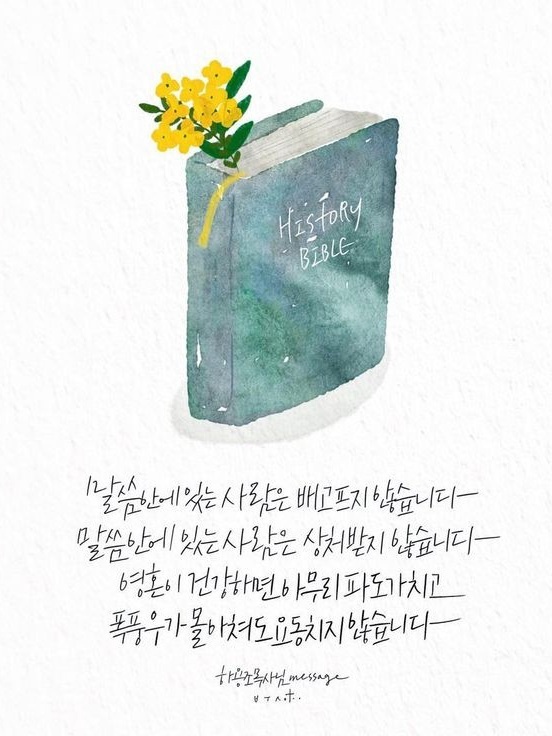 HISTORY
BIBLE
말씀안에 있는 사람은 배고프지 않습니다
말씀안에 있는 사람은 상처받지 않습니다
영혼이 건강하면 아무리 파도가 치고
폭풍우가 몰아쳐도 요동치지 않습니다
하용조목사님 message